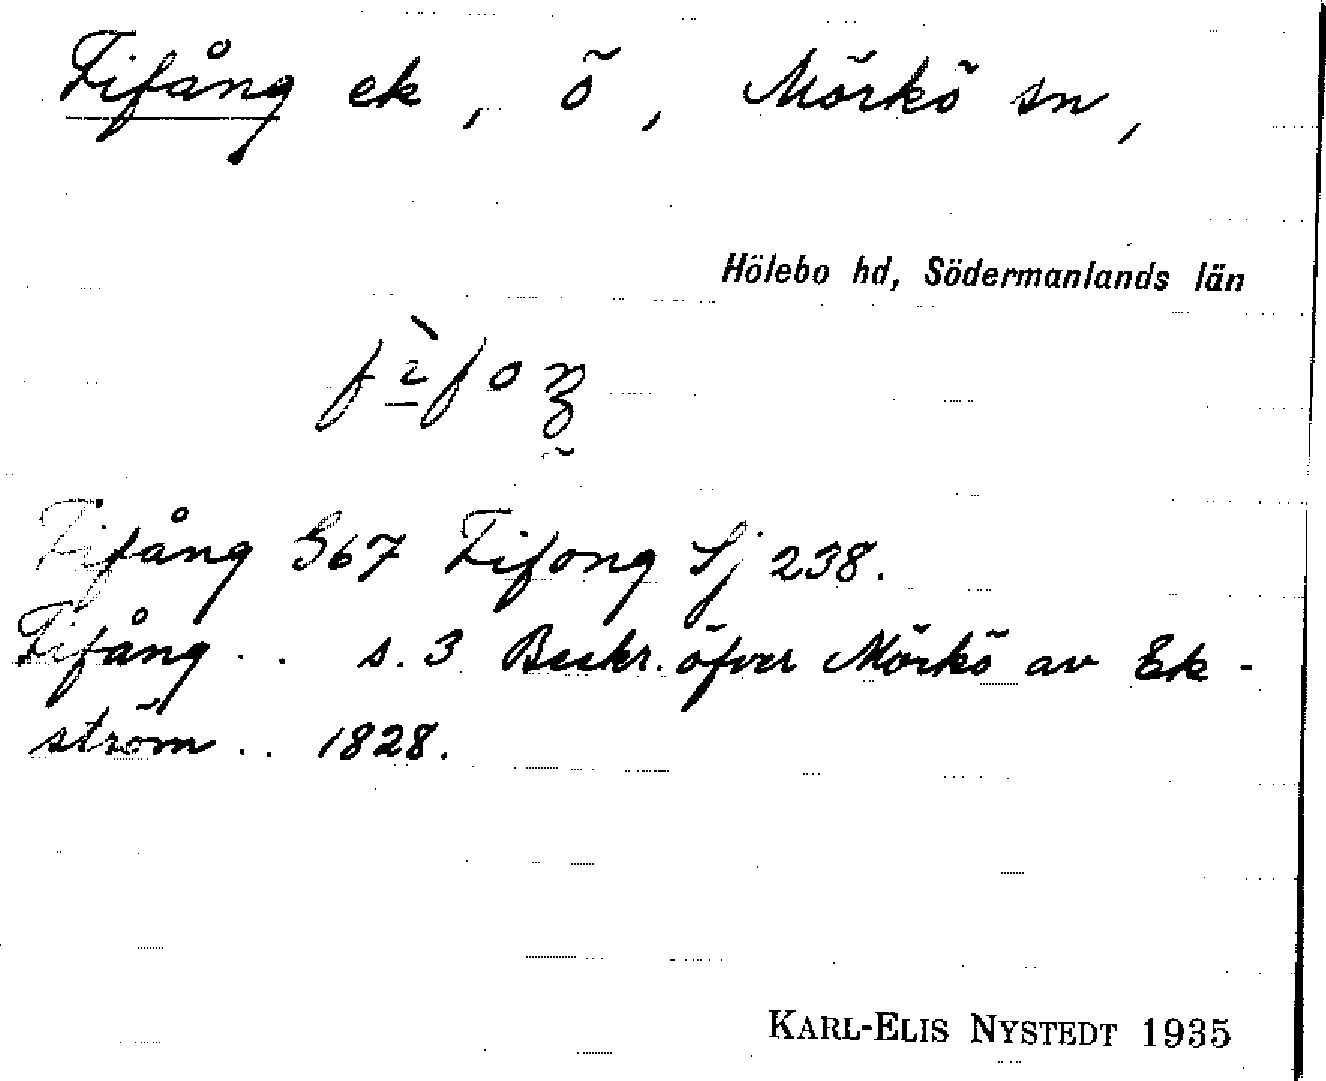 Fifång ek, ö, Mörkö sn,
Hölebo hd, Södermanlands län
Fifång G67 Fifong Sj 238.
Fifång .. s. 3 Beskr. öfver Mörkö av Ek-
ström .. 1828.
KARL-ELIS NYSTEDT 1935